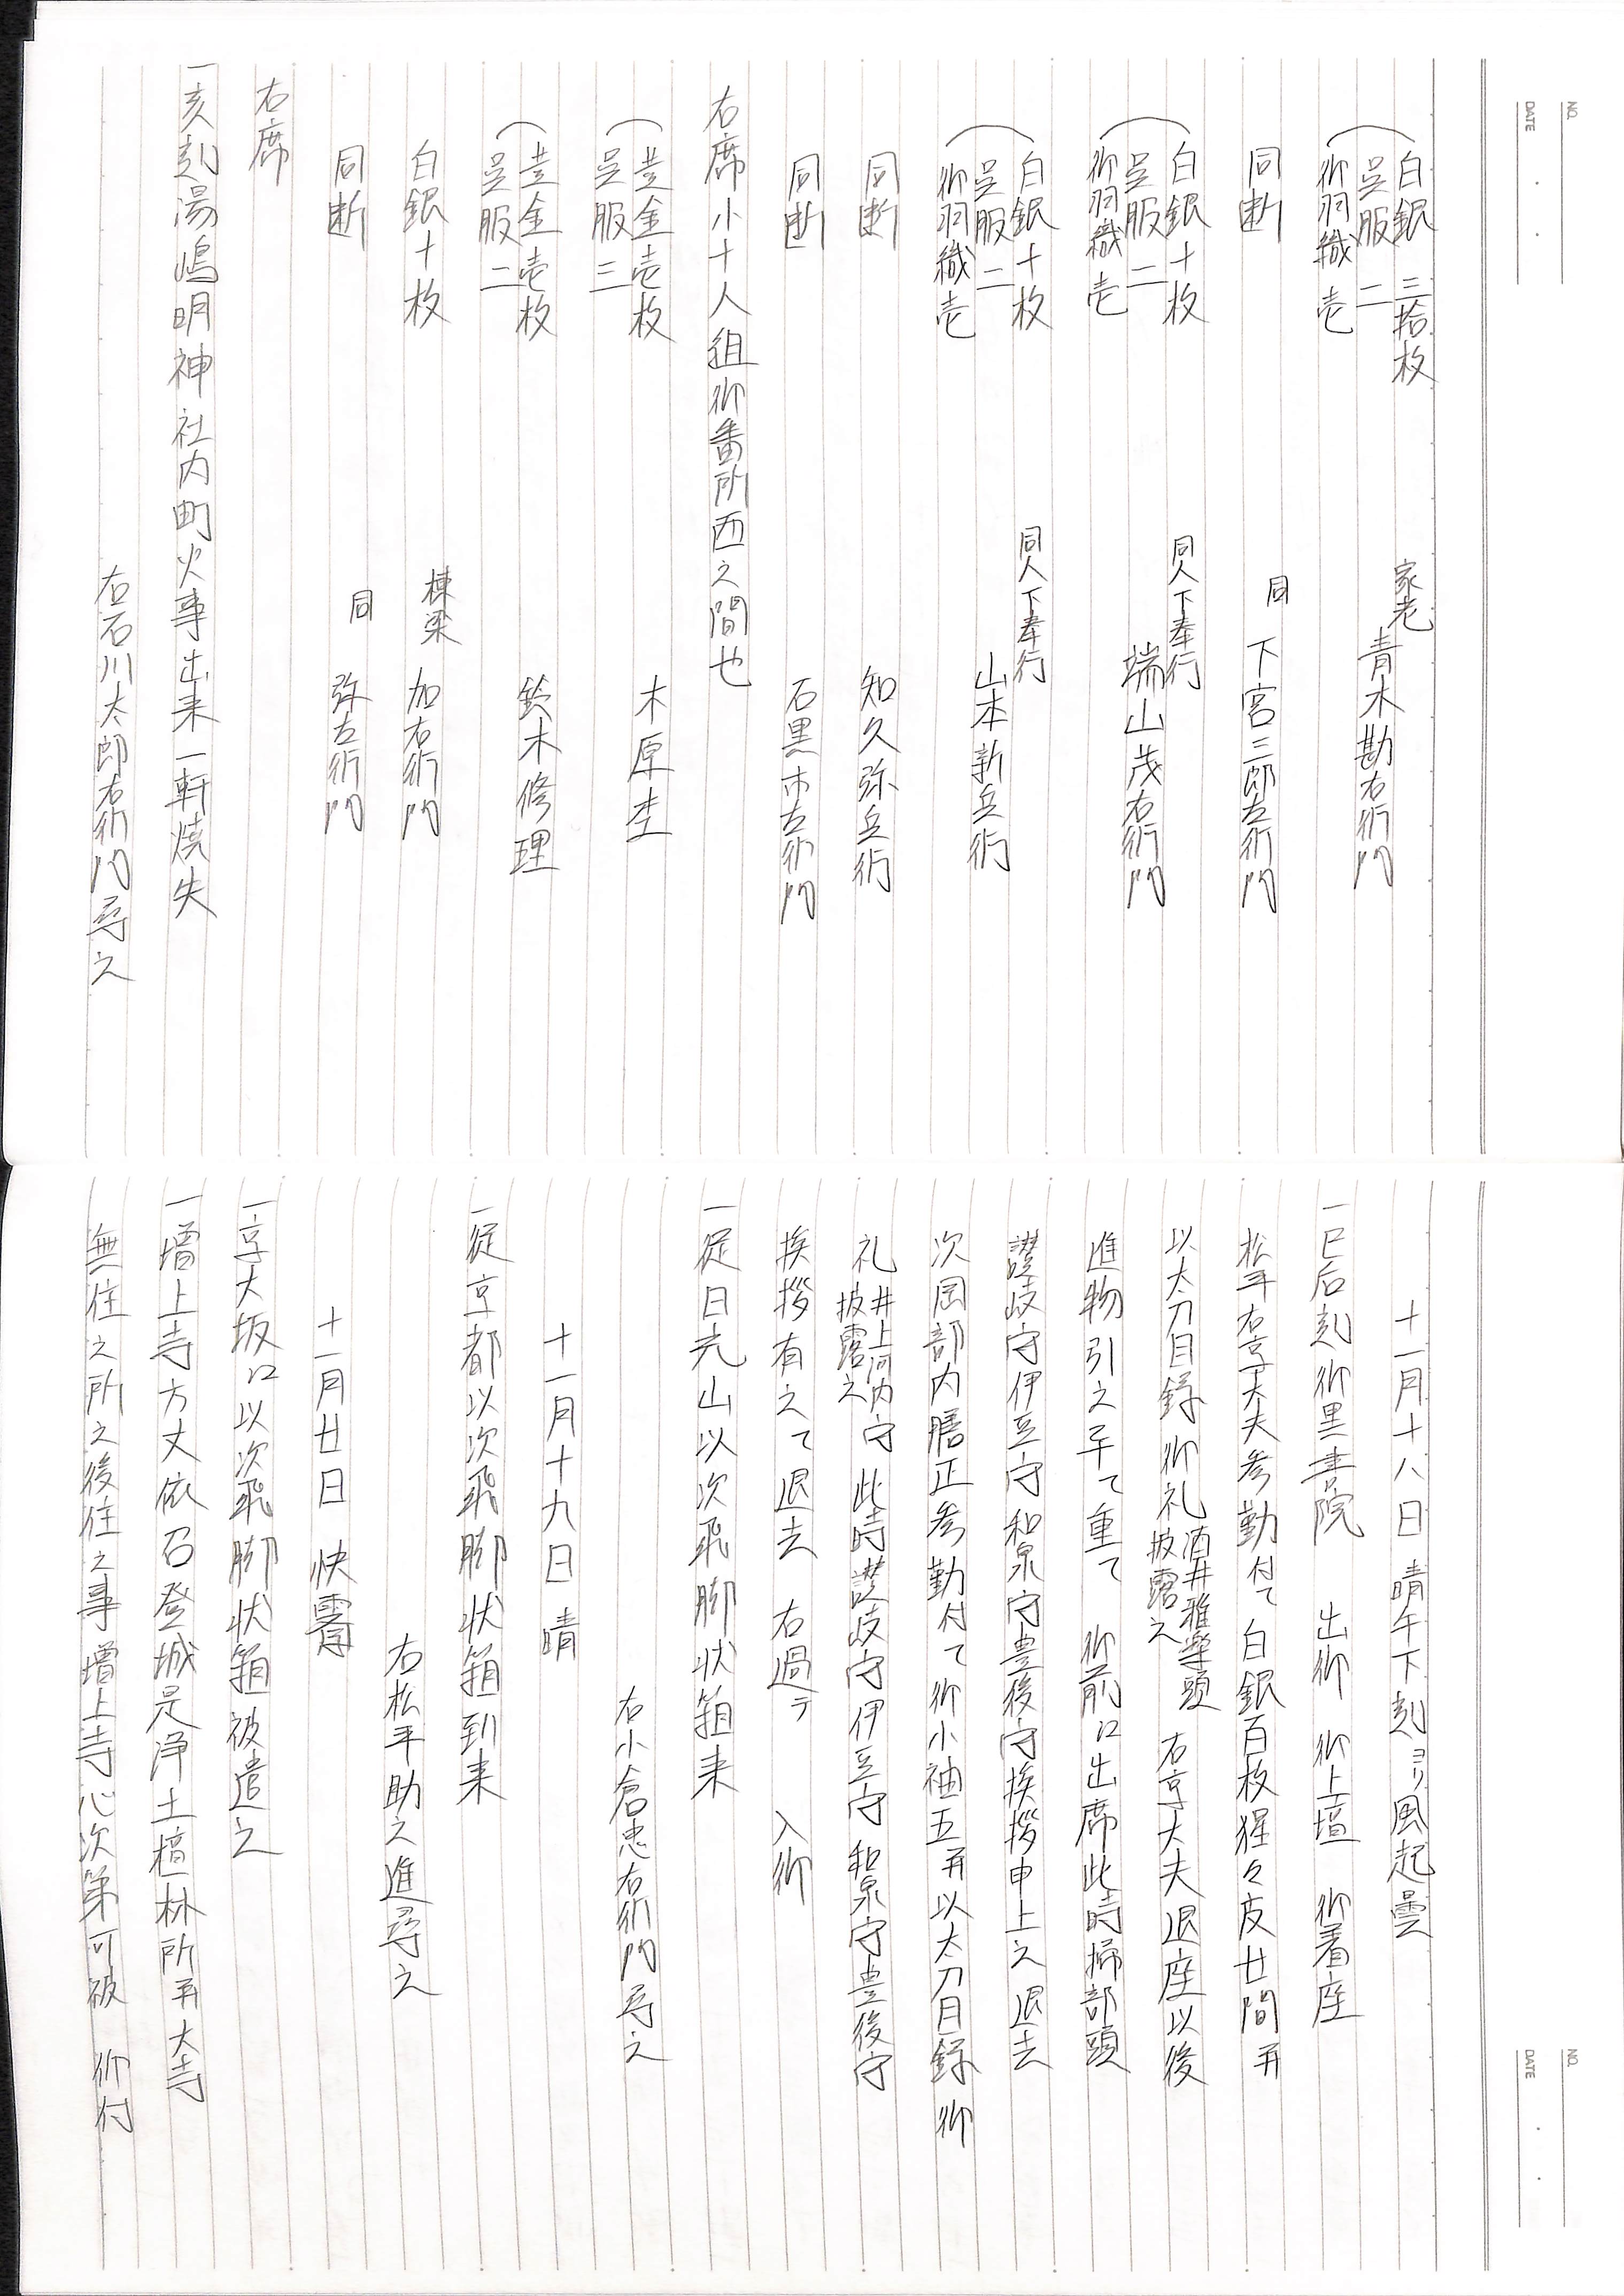 NO.
DATE
白銀 三拾枚
呉服 二
御羽織 壱
家老
青木勘右衛門
同断
同 下宮三郎左衛門
白銀十枚
呉服 二
御羽織 壱
同人下奉行
端山茂右衛門
白銀十枚
呉服 二
御羽織 壱
同人下奉行
山本新兵衛
同断
知久弥兵衛
同断
石黒市左衛門
右席小十人組御番所西之間也
黄金壱枚
呉服 三
木原杢
黄金壱枚
呉服 二
鈴木修理
白銀十枚
棟梁 加右衛門
同断
同 弥左衛門
右席
一亥刻湯嶋明神社内町火事出来一軒焼失
右石川太郎右衛門尋之
NO.
DATE
十一月十八日 晴午下刻ヨリ風起曇
一巳后刻御黒書院 出御 御上壇 御着座
松平右京大夫参勤付て 白銀百枚猩々皮廿間并
以太刀目録御礼 酒井雅楽頭
披露之 右京大夫退座以後
進物引之畢て重て 御前江出席此時掃部頭
讃岐守伊豆守和泉守豊後守挨拶申上之退去
次岡部内膳正参勤付て御小袖五并以太刀目録御
礼 井上河内守
披露之 此時讃岐守伊豆守和泉守豊後守
挨拶有之て退去 右過テ 入御
一従日光山以次飛脚状箱来
右小倉忠右衛門尋之
十一月十九日 晴
一従京都以次飛脚状箱到来
右松平助之進尋之
十一月廿日 快霽
一京大坂江以次飛脚状箱被遣之
一増上寺方丈依召登城是浄土檀林所并大寺
無住之所之後住之事増上寺心次第可被 仰付